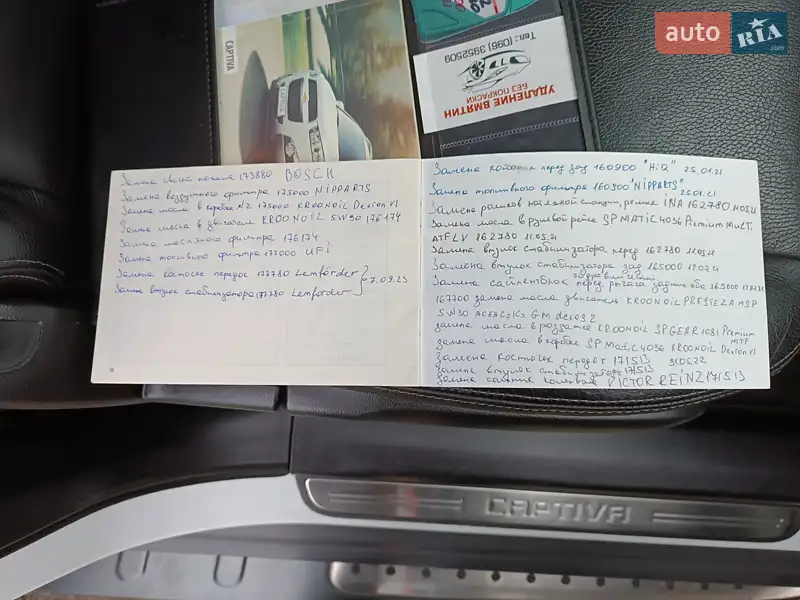 auto RIA
.com
CAPTIVA
Тел.: (096) 3952509
УДАЛЕНИЕ ВМЯТИН
БЕЗ ПОКРАСКИ
Замена свечи накала 173880 BOSCH
Замена воздушного фильтра 175000 NIPPARTS
Замена масла в коробке 175000 KROONOIL Dexron VI
Замена масла в двигателе KROONOIL 5W30 176174
Замена масляного фильтра 176174
Замена топливного фильтра 172000 UFi
Замена косточек перед 177780 Lemförder
Замена втулок стабилизатора 177780 Lemförder 7.09.23
Замена колодок перед зад 160900 "HiQ" 25.01.21
Замена топливного фильтра 160900 "NIPPARTS" 25.01.21
Замена роликов натяжной ремня INA 162780 11.05.21
Замена масла в рулевой рейке SP MATIC 4036 Premium MULTi
ATF LV 162780 11.05.21
Замена втулок стабилизатора перед 162780 11.05.21
Замена втулок стабилизатора зад 165000 12.07.21
Замена сайлентблок перед рычага задние оба 165000 12.07.21
167700 замена масла двигателя KROONOIL PRESTEZA MSP
5W30 GM dexos 2
замена масла в раздатке KROONOIL SP GEAR 1081 Premium
замена масла в коробке SP Matic 4036 KROONOIL Dexron VI
Замена косточек перед 171513
Замена втулок стабилизатора 171513
Замена сальник коленвала VICTOR REINZ 171513
CAPTIVA